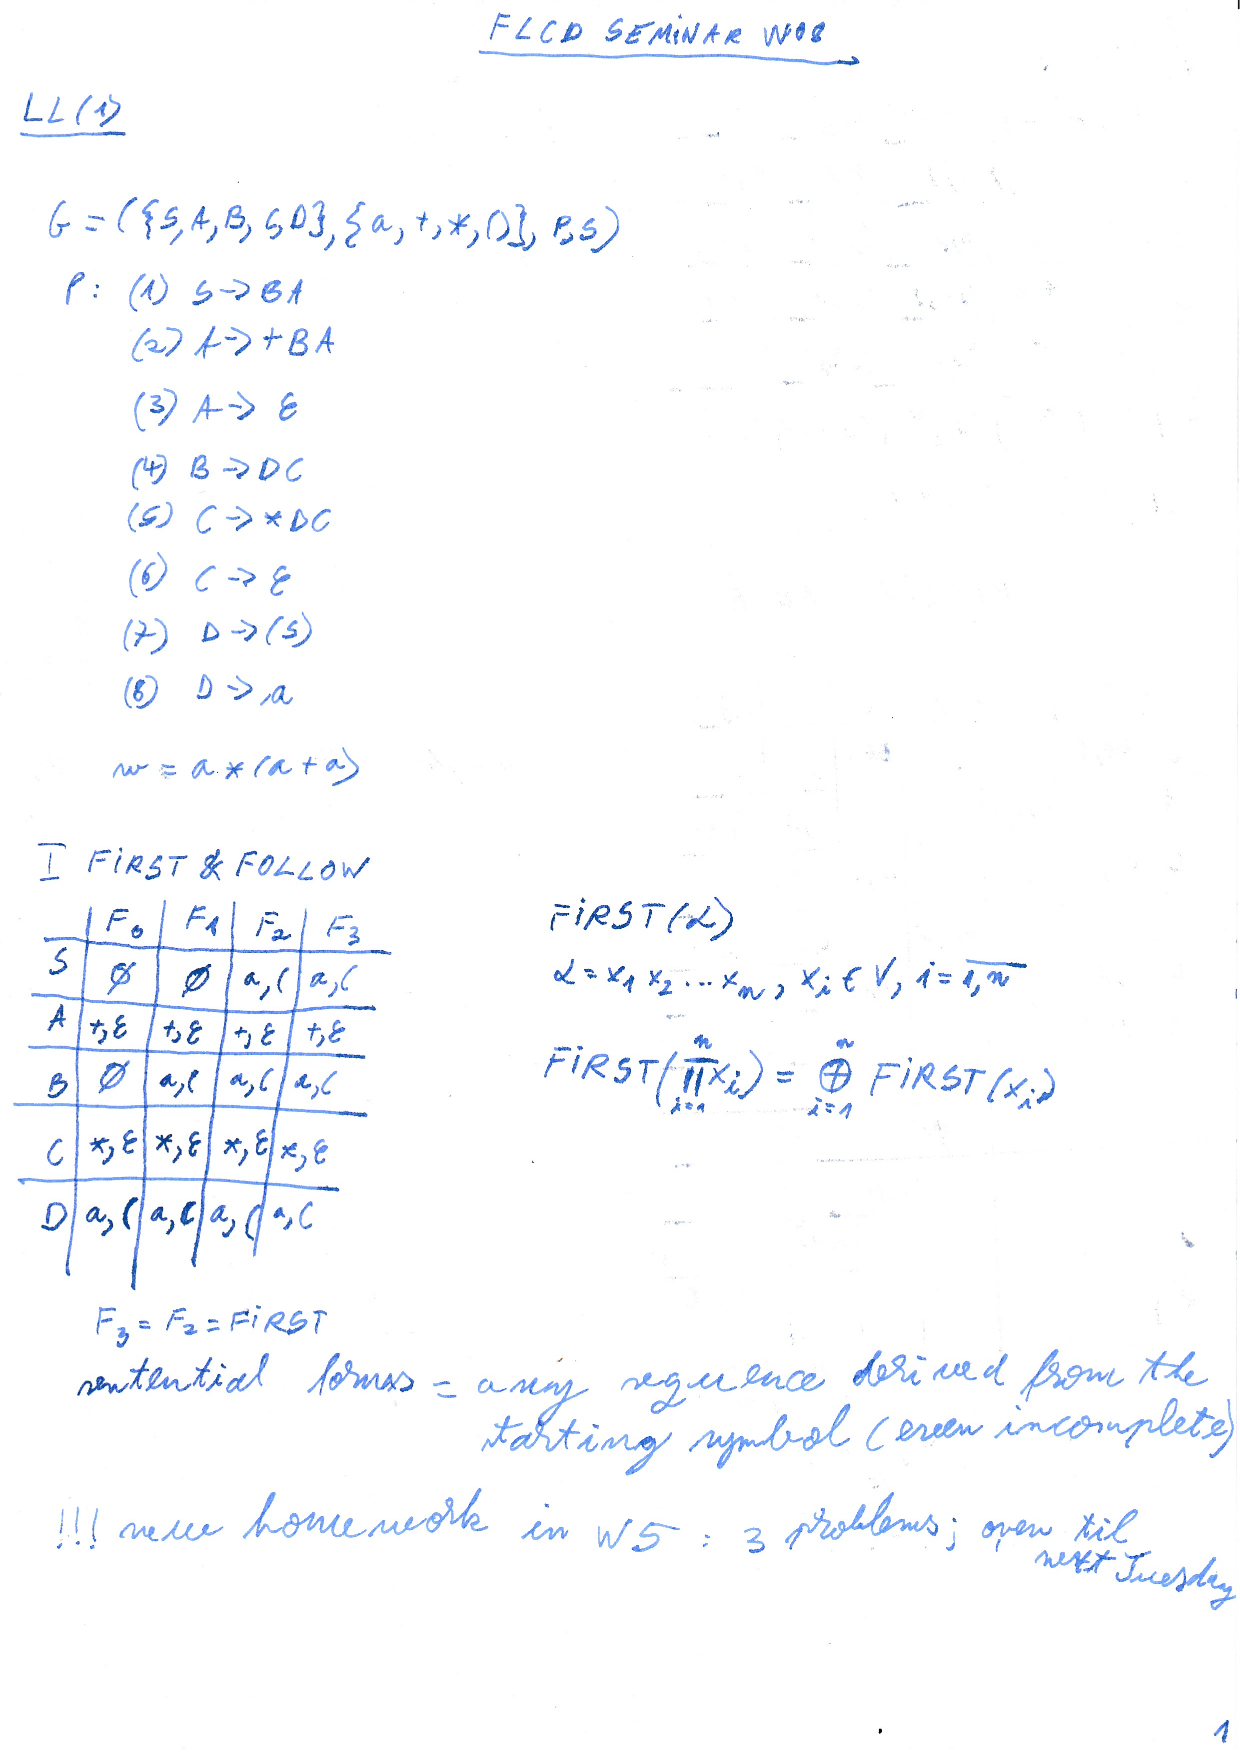 FLCD SEMINAR W08
LL(1)
G = ({S, A, B, C, D}, {a, +, *, ()}, P, S)
P: (1) S -> BA
(2) A -> +BA
(3) A -> ε
(4) B -> DC
(5) C -> *DC
(6) C -> ε
(7) D -> (S)
(8) D -> a
w = a * (a + a)
I FIRST & FOLLOW
F0 F1 F2 F3
S ∅ ∅ a, ( a, (
A +, ε +, ε +, ε +, ε
B ∅ a, ( a, ( a, (
C *, ε *, ε *, ε *, ε
D a, ( a, ( a, ( a, (
F3 = F2 = FIRST
FIRST(α)
α = x1 x2 ... xn, xi ∈ V, i = 1,n
FIRST(∏ i=1 n xi) = ⊕ i=1 n FIRST(xi)
sentential forms = any sequence derived from the
starting symbol (even incomplete)
!!! new homework in W5 : 3 problems; open til
next Tuesday
1